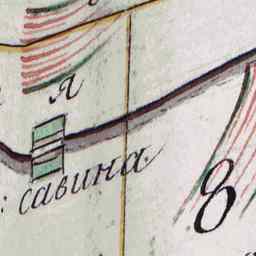 я
: савина.
8